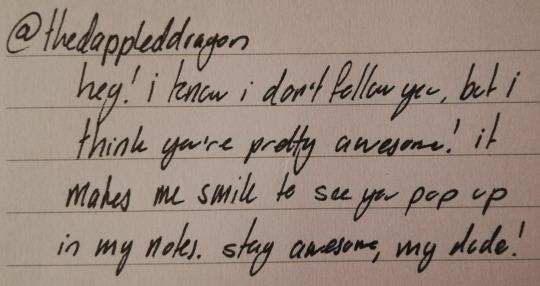 @thedappleddragon
hey! i know i don't follow you, but i
think you're pretty awesome! it
makes me smile to see you pop up
in my notes. stay awesome, my dude!